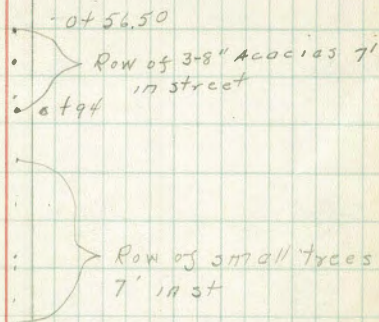 - 0+56.50
Row of 3-8" Acacias 7'
in street
0+94
Row of small trees
7' in st